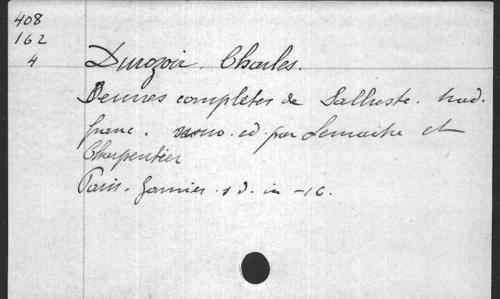 408
162
4
Durozoir. Charles.
Oeuvres completes de Salluste. trad.
franc. nouv. ed. par Lemaitre et
Charpentier
Paris. Garnier. s d. in -16.